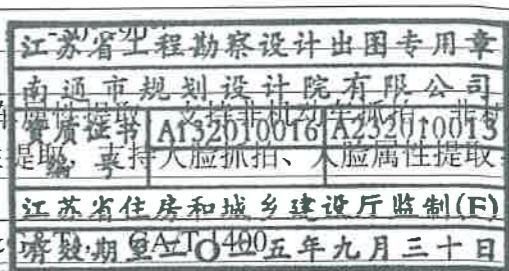 江苏省工程勘察设计出图专用章
南通市规划设计院有限公司
资质证书 A132010016 A232010013
编号
提取，支持人脸抓拍、人脸属性提取
江苏省住房和城乡建设厅监制(F)
有效期至二〇二五年九月三十日